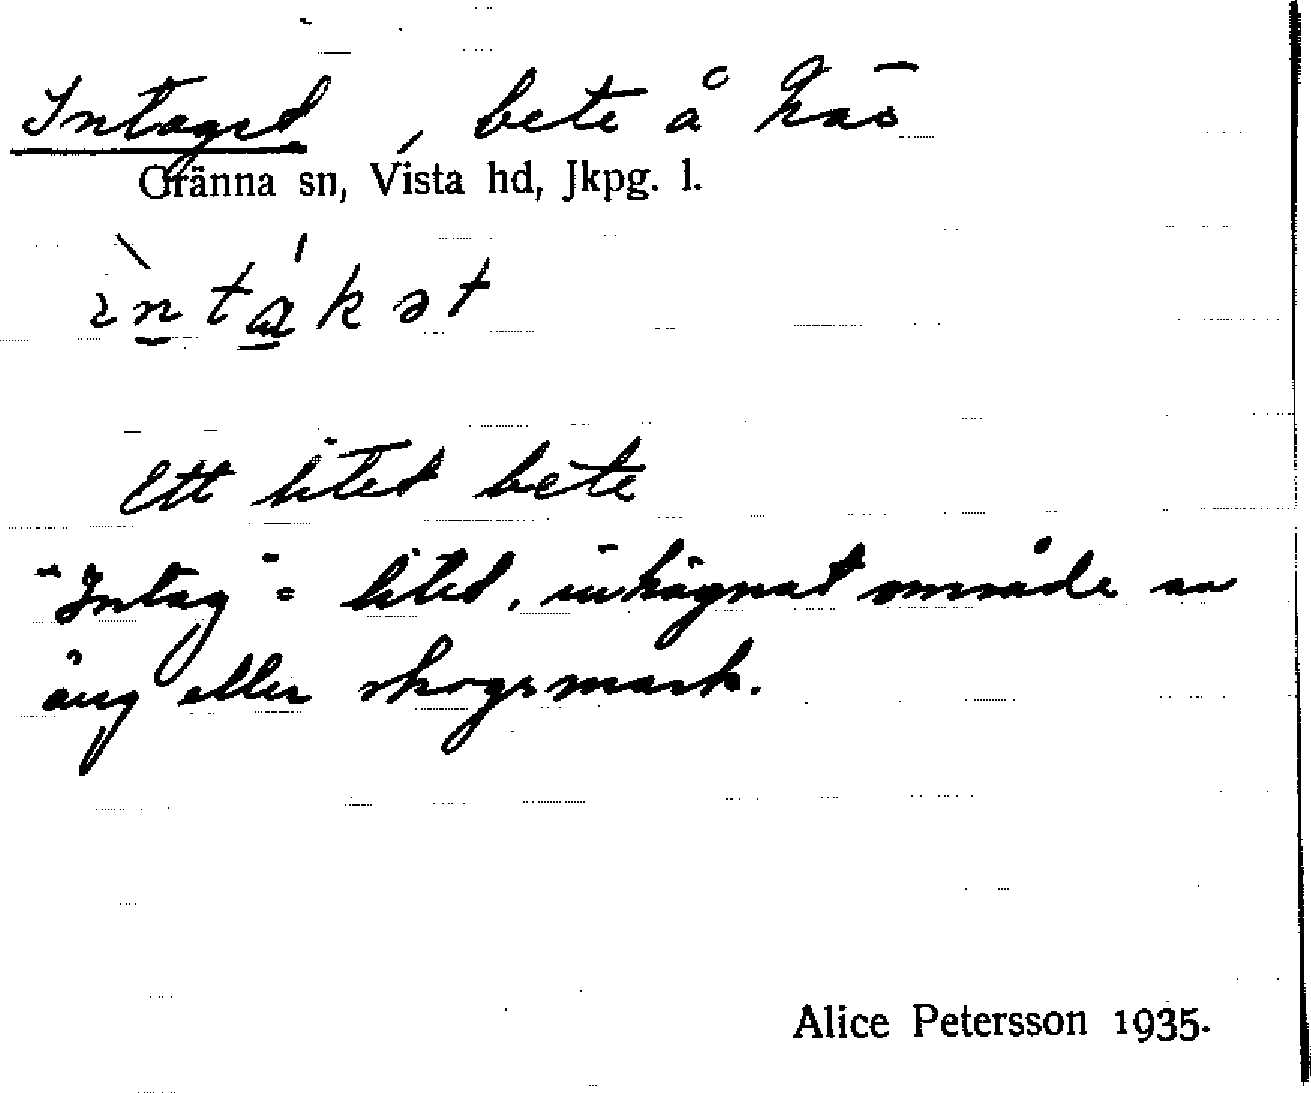 Intaget, bete å Kas
Gränna sn, Vista hd, Jkpg. l.
ìntákət
Ett litet bete
"Intag" = litet, inhägnat område av
äng eller skogsmark.
Alice Petersson 1935.